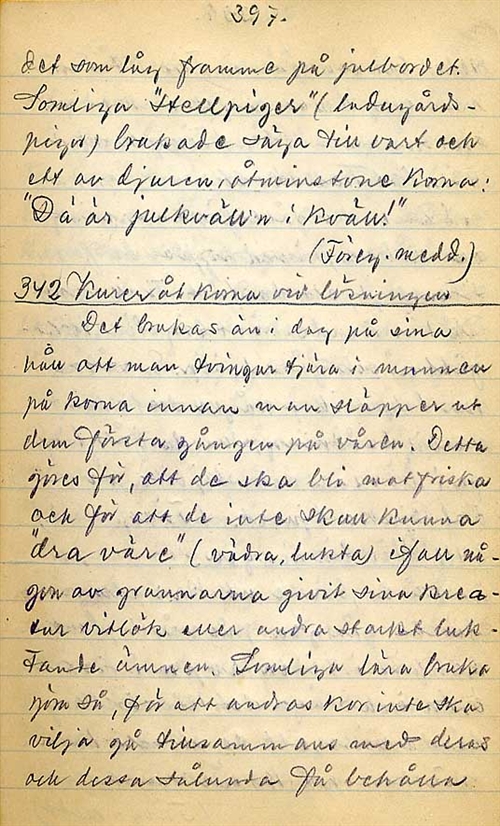 397.
det som låg framme på julbordet.
Somliga "stellpiger" (ladugårds-
pigor) brukade säga till vart och
ett av djuren, åtminstone korna:
"Dä är julkväll'n i kväll!"
(Föreg. medd.)
342 åt korna vid lösningen
Det brukas än i dag på sina
håll att man tvingar tjära i munnen
på korna innan man släpper ut
dem första gången på våren. Detta
göres för, att de ska bli matfriska
och för att de inte skall kunna
"dra väre" (vädra, lukta) ifall nå-
gon av grannarna givit sina krea-
tur vitlök eller andra starkt luk-
tande ämnen. Somliga lära bruka
göra så, för att andras kor inte ska
vilja gå tillsammans med deras
och dessa sålunda få behålla